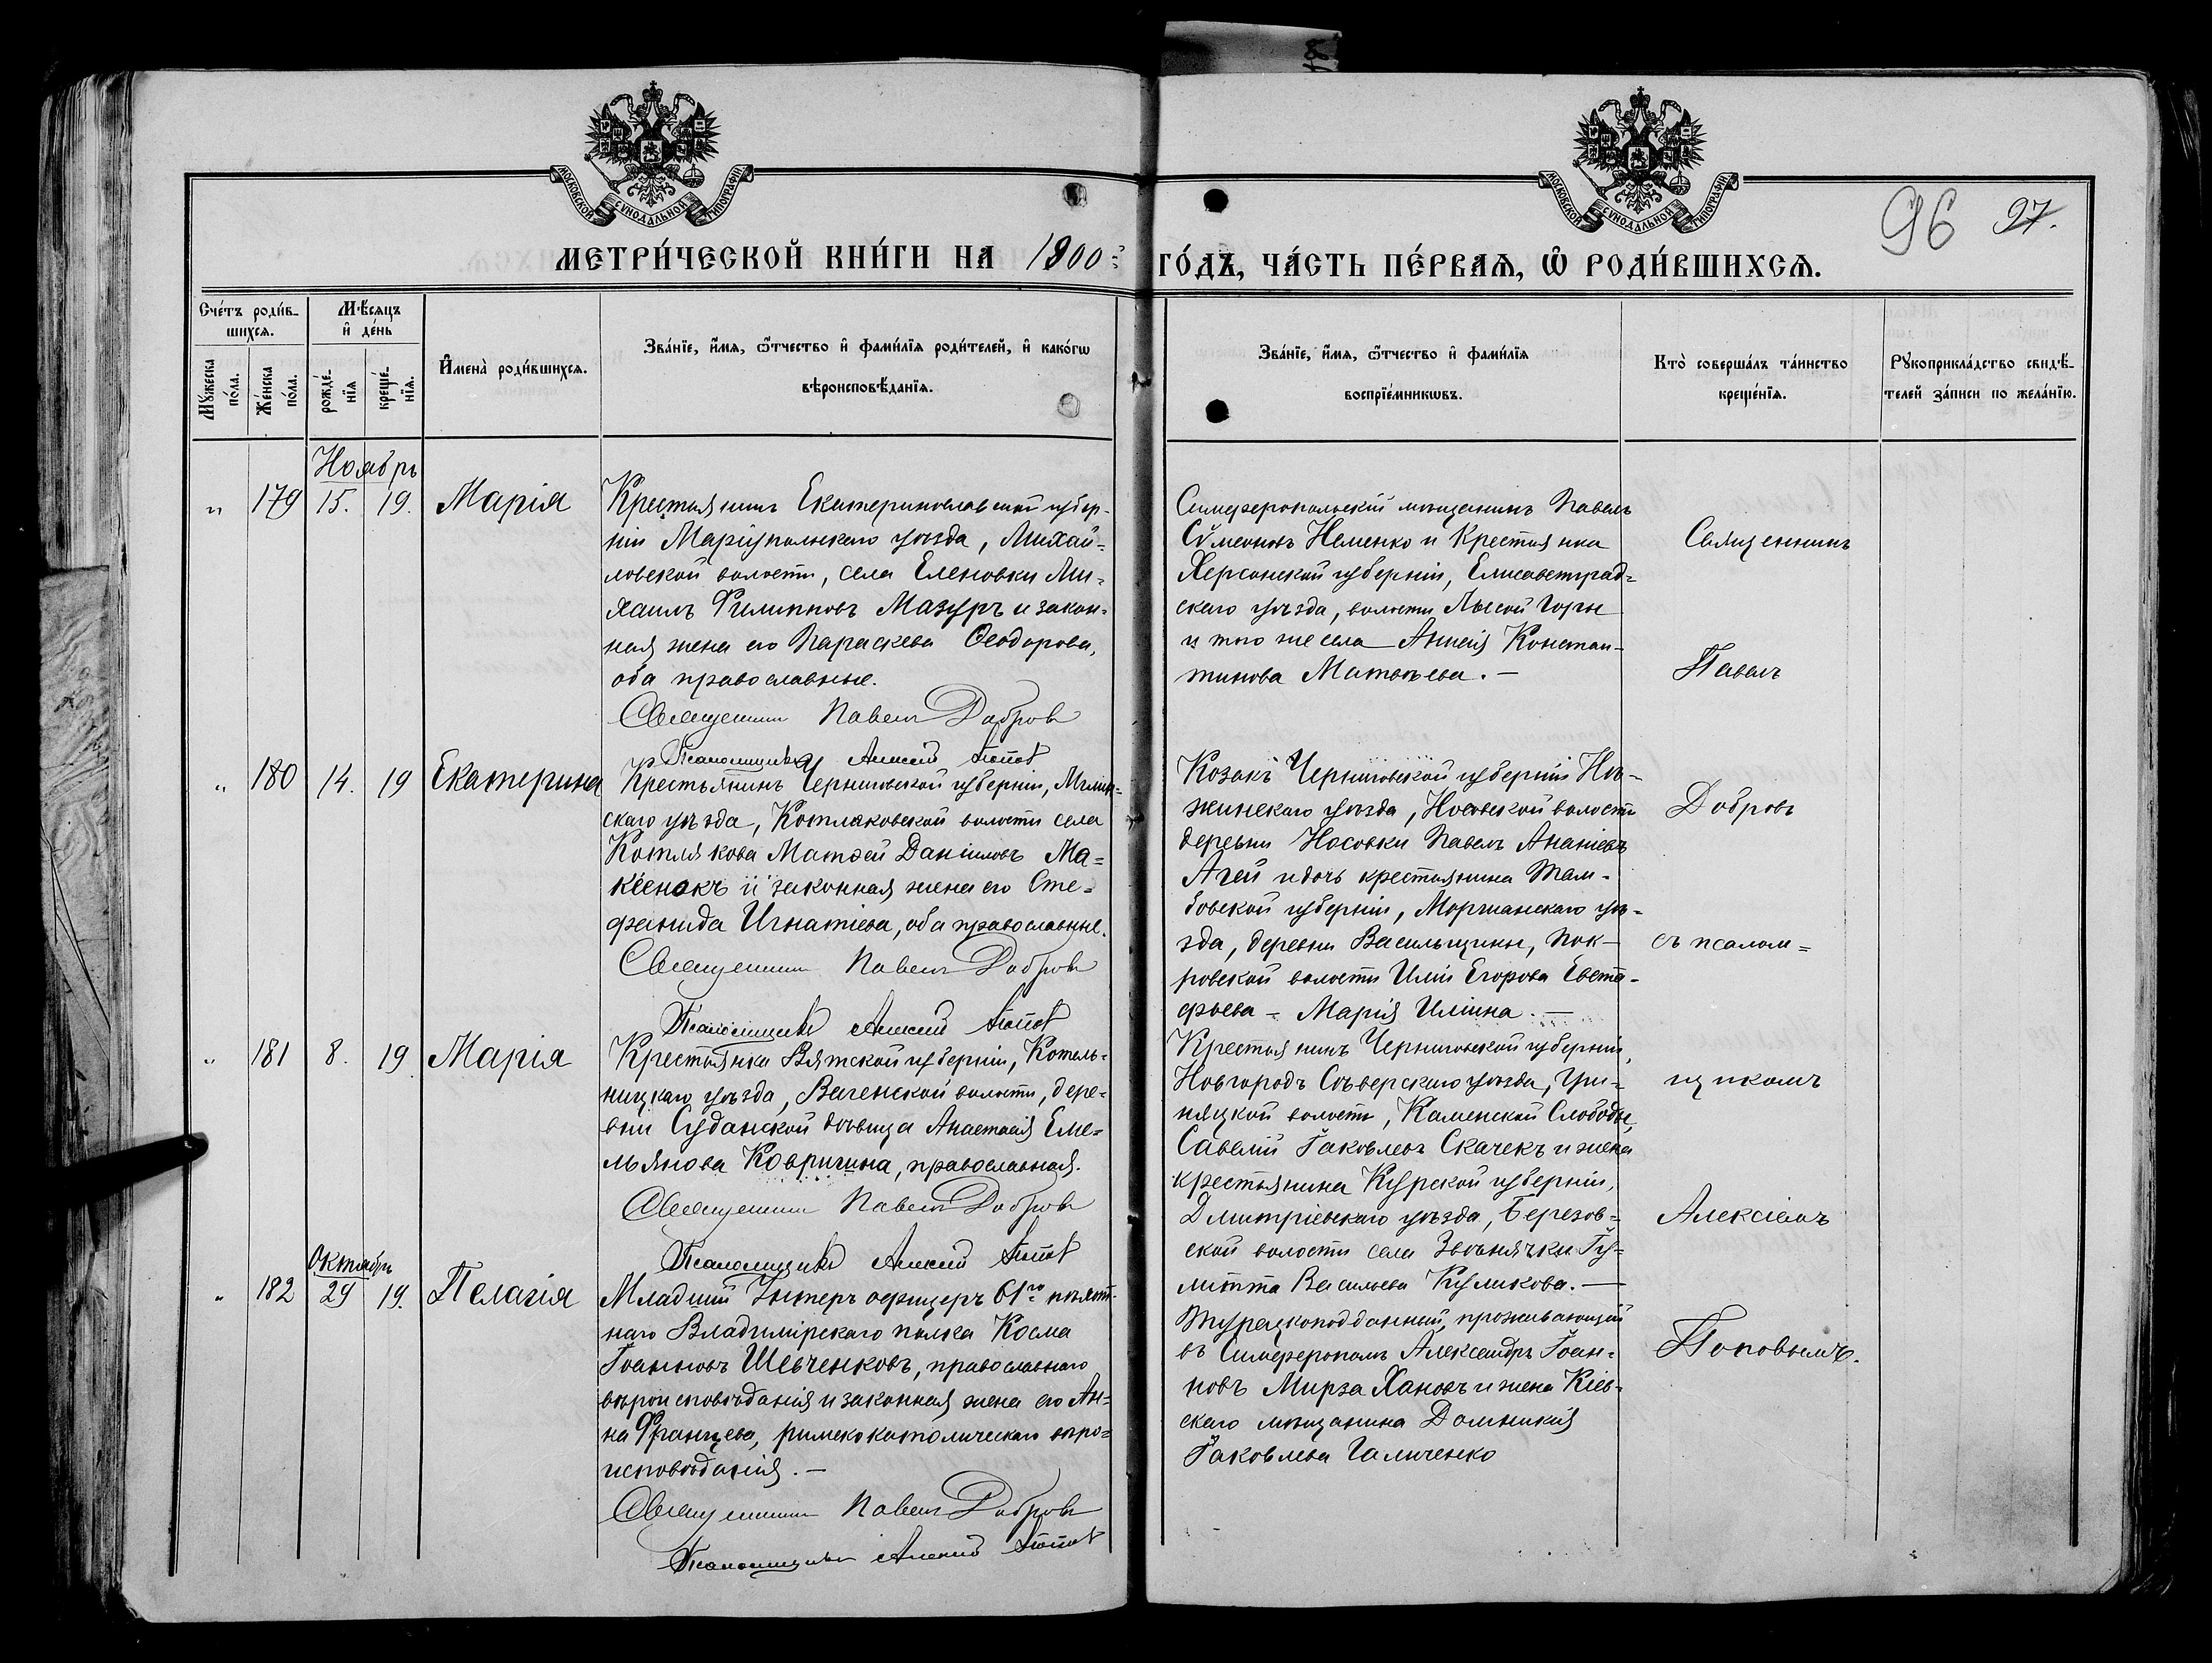 МОСКОВСКОЙ СѴНОДАЛЬНОЙ ТИПОГРАФІИ
МОСКОВСКОЙ СѴНОДАЛЬНОЙ ТИПОГРАФІИ
96 97.
МЕТРИ́ЧЕСКОЙ КНИ́ГИ НА 1900 ГО́ДЪ, ЧА́СТЬ ПЕ́РВАѦ, Ѡ РОДИ́ВШИХСѦ.
Сче́тъ роди́в-
шихсѧ.
Мꙋ́жеска
по́ла.
Же́нска
по́ла.
Мѣ́сѧцъ
и҆ де́нь
рожде́-
нїѧ
креще́-
нїѧ.
И҆мена̀ роди́вшихсѧ.
Зва́нїе, и҆́мѧ, ѻ҆́тчество и҆ фами́лїѧ роди́телей, и҆ како́гѡ
вѣроисповѣ́данїѧ.
Зва́нїе, и҆́мѧ, ѻ҆́тчество и҆ фами́лїѧ
воспрїе́мникѡвъ.
Кто̀ соверша́лъ та́инство
креще́нїѧ.
Рꙋкоприкла́дство свидѣ́-
телей за́писи по жела́нїю.
Ноябрь
" 179 15. 19. Марія
Крестьянинъ Екатеринославской губер-
ніи Маріупольскаго уѣзда, Михай-
ловской волости, села Еленовки Ми-
хаилъ Филипповъ Мазуръ и закон-
ная жена его Параскева Ѳеодорова,
оба православные.
Священникъ Павелъ Добровъ
Псаломщикъ Алексій Поповъ
Симферопольскій мѣщанинъ Павелъ
Сѷмеоновъ Неменко и Крестьянка
Херсонской губерніи, Елисаветград-
скаго уѣзда, волости Лысой Горы
и того же села Анисія Констан-
тинова Матвѣева. —
Священникъ
Павелъ
" 180 14. 19 Екатерина
Крестьянинъ Черниговской губерніи, Мглин-
скаго уѣзда, Котляковской волости села
Котлякова Матѳей Даніиловъ Ма-
кеенокъ и законная жена его Сте-
фанида Игнатіева, оба православные.
Священникъ Павелъ Добровъ
Псаломщикъ Алексій Поповъ
Козакъ Черниговской губерніи Нѣ-
жинскаго уѣзда, Носовской волости
деревни Носовки Павелъ Ананіевъ
Агей и дочь крестьянина Там-
бовской губерніи, Моршанскаго уѣ-
зда, деревни Васильщины, Пок-
ровской волости Иліи Егорова Евста-
фьева - Марія Иліина. —
Добровъ
съ псалом-
" 181 8. 19 Марія
Крестьянка Вятской губерніи, Котель-
ницкаго уѣзда, Вагенской волости, дере-
вни Суданской дѣвица Анастасія Еме-
льянова Ковригина, православная.
Священникъ Павелъ Добровъ
Псаломщикъ Алексій Поповъ
Крестьянинъ Черниговской губерніи,
Новгородъ Сѣверскаго уѣзда,
волости, Каменской Слободы,
Савелій Іаковлевъ Скачекъ и жена
крестьянина Курской губерніи,
Дмитріевскаго уѣзда, Березов-
ской волости села Звѣнячки Іу-
литта Васильева Куликова. —
щикомъ
Алексіемъ
Октябрь
" 182 29 19. Пелагія
Младшій Унтеръ офицеръ 61го пѣхот-
наго Владимірскаго полка Косма
Іоанновъ Шевченковъ, православнаго
вѣроисповѣданія и законная жена его Ан-
на Францева, римскокатолическаго вѣро-
исповѣданія. —
Священникъ Павелъ Добровъ
Псаломщикъ Алексій Поповъ
Турецкоподданный, проживающій
въ Симферополѣ Александръ Іоан-
новъ Мирза Хановъ и жена Кіев-
скаго мѣщанина Домникія
Іаковлева Галиченко
Поповымъ.